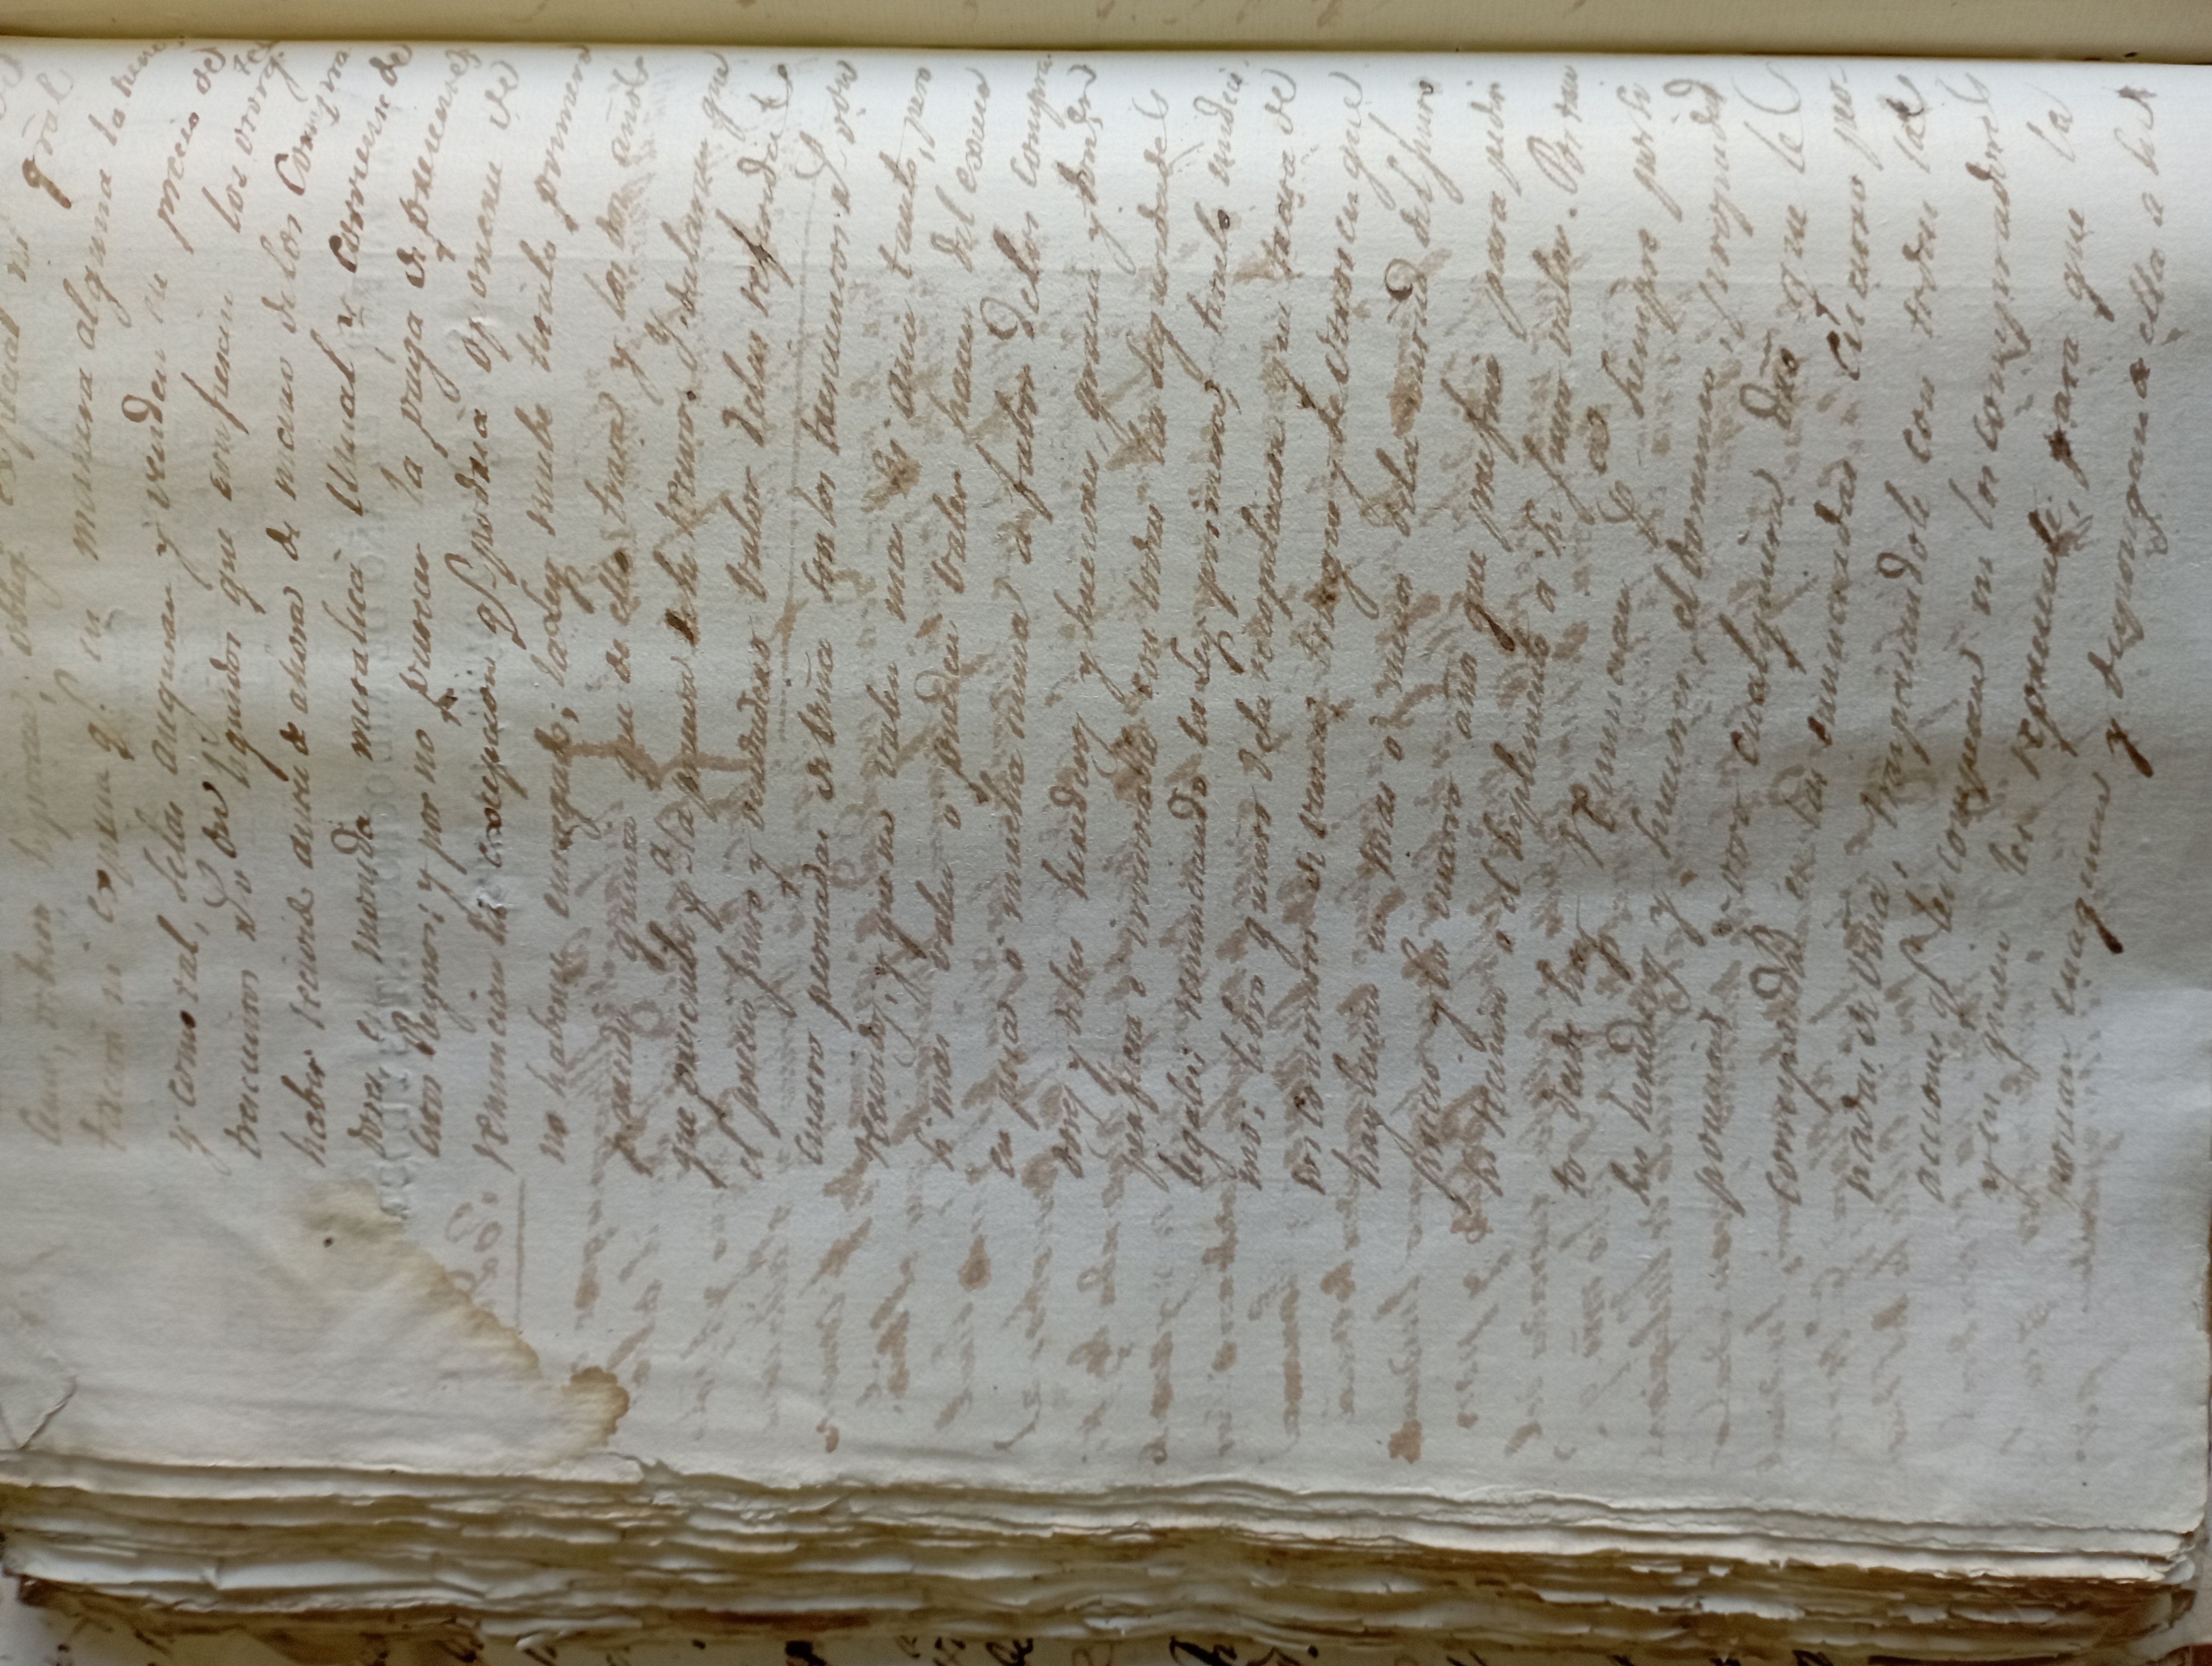 censo, tributo, hipoteca, oblig.n especial ni gral
tacita ni expresa q.e en manera alguna la tiene,
y como tal, selas aseguran y venden en precio de
trescientos r.s v.on liquidos que confiesan los otorg.tes
haber recivido antes de ahora de mano de los Compra
dores, en moneda metalica usual y corriente de
estos Reynos; y por no parecer la paga de presente
renuncian la excepcion q.e podria oponerse de
no haberse entregado; la Ley nuebe titulo primero
partida quinta que de ello trata y los dos años
que prescribe p.a la prueva de su recivo. Y declaran que
el precio justo y verdadero valor delas referidas
cuatro peonadas de viña son los trescientos r.s v.on
recividos; y que no valen mas ni aun tanto, pero
si mas valen ó pueden valer hacen del exceso
en poca ó mucha suma á fabor delos compra
dores y de sus herederos y sucesores, gracia y don.on
perfecta é irrevocable con todas las seguridades
legales; renunciando la Ley primera, titulo undeci
mo, libro quinto dela recopilacion que trata de
los contratos de venta, trueque y de otros en que
hay lesion en mas ó menos dela mitad del justo
precio y los cuatro años que prefine para pedir
su recision ó el suplemento á su justo valor. Por tan
to desde hoy renuncian p.a siempre por si
sus herederos y sucesores, el dominio, propiedad
posesion y otro cualquiera dro que les
corresponda en las enunciadas cuatro peo-
nadas de viña, traspasandole con todas las
acciones q.e les competan en los compradores
y en quien les represente, para que la
posean enagenen y dispongan de ella a su